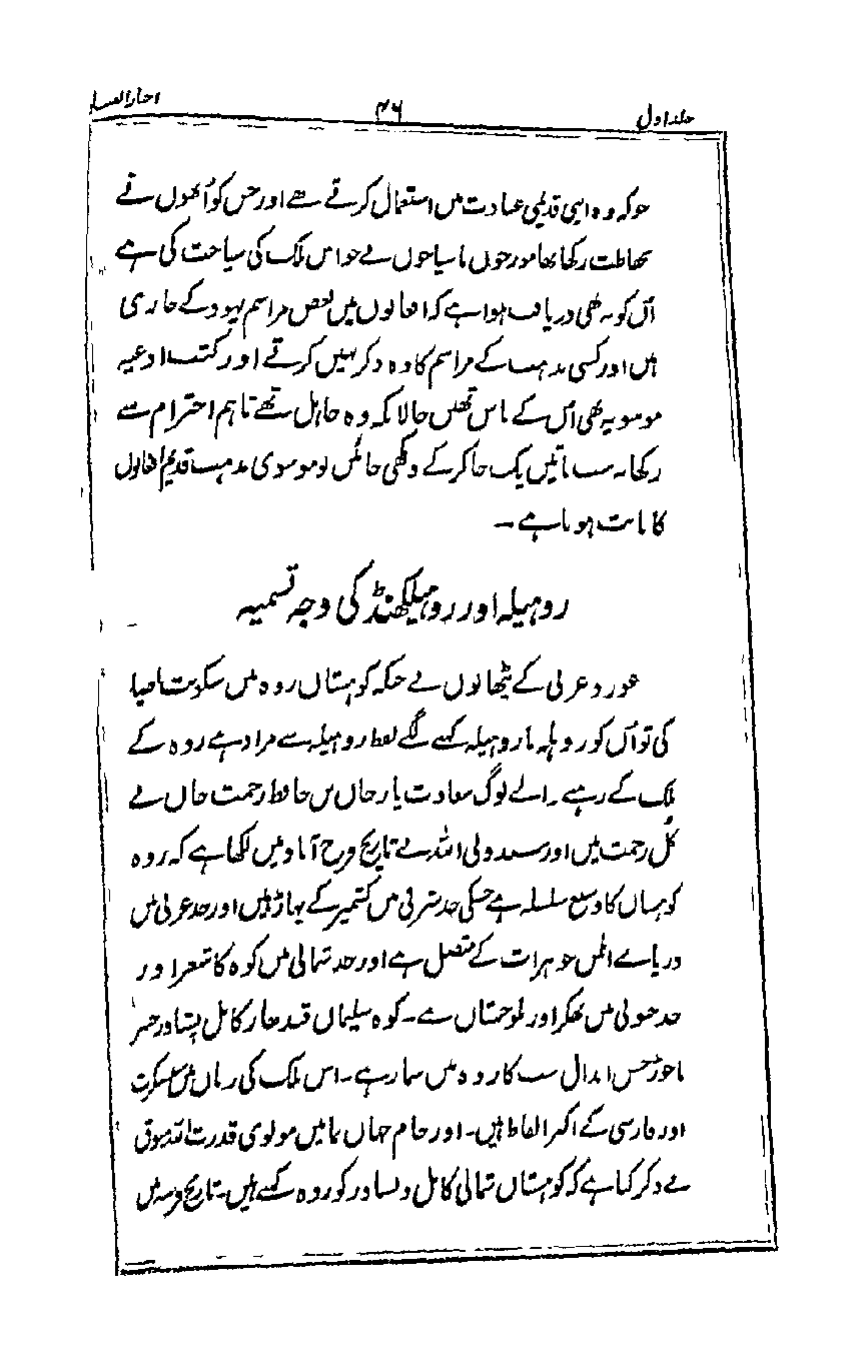 جلد اول ۴۶ اخبار الصنادید
جو کہ وہ اپنی قدیمی عبادت میں استعمال کرتے تھے اور جس کو اُنھوں نے
بحفاظت رکھا تھا مورخوں یا سیاحوں نے جو اس ملک کی سیاحت کی ہے
اُن کو یہ بھی دریافت ہوا ہے کہ افغانوں میں بعض مراسم یہود کے جاری
ہیں اور کسی مذہب کے مراسم کا وہ ذکر نہیں کرتے اور کتب ادعیہ
موسویہ بھی اُن کے پاس تھیں حالانکہ وہ جاہل تھے تاہم احترام سے
رکھا۔ یہ سب باتیں یک جا کر کے دیکھی جائیں تو موسوی مذہب قدیم افغانوں
کا ثابت ہوتا ہے ۔
روہیلہ اور روہیلکھنڈ کی وجہ تسمیہ
غور و غزنی کے پٹھانوں نے جبکہ کوہستان روہ میں سکونت اختیار
کی تو اُن کو روہلہ یا روہیلہ کہنے لگے لفظ روہیلہ سے مراد ہے روہ کے
ملک کے رہنے والے لوگ سعادت یار خاں بن حافظ رحمت خاں نے
گل رحمت میں اور سید ولی اللہ نے تاریخ فرخ آباد میں لکھا ہے کہ روہ
کوہستان کا وسیع سلسلہ ہے جسکی حد شرقی میں کشمیر کے پہاڑ ہیں اور حد غربی میں
دریاے المن جو ہرات کے متصل ہے اور حد شمالی میں کوہ کاشغر اور
حد جنوبی میں بھکر اور بلوچستان ہے۔ کوہ سلیمان قندھار کابل پشاور خیبر
باجوڑ حسن ابدال سب کا روہ میں شمار ہے۔ اس ملک کی زبان میں سنسکرت
اور فارسی کے اکثر الفاظ ہیں۔ اور جام جہاں نما میں مولوی قدرت اللہ شوق
نے ذکر کیا ہے کہ کوہستان شمالی کابل و پشاور کو روہ کہتے ہیں۔ تاریخ فرشتہ میں